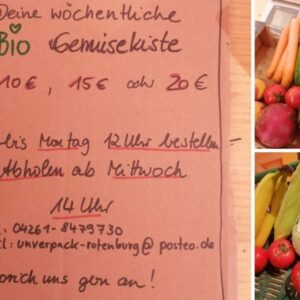 Deine wöchentliche
BIO Gemüsekiste
10€, 15€ oder 20€
bis Montag 12 Uhr bestellen -
Abholen ab Mittwoch
14 Uhr
.: 04261-8479730
l: unverpackt-rotenburg@posteo.de
prich uns gern an!